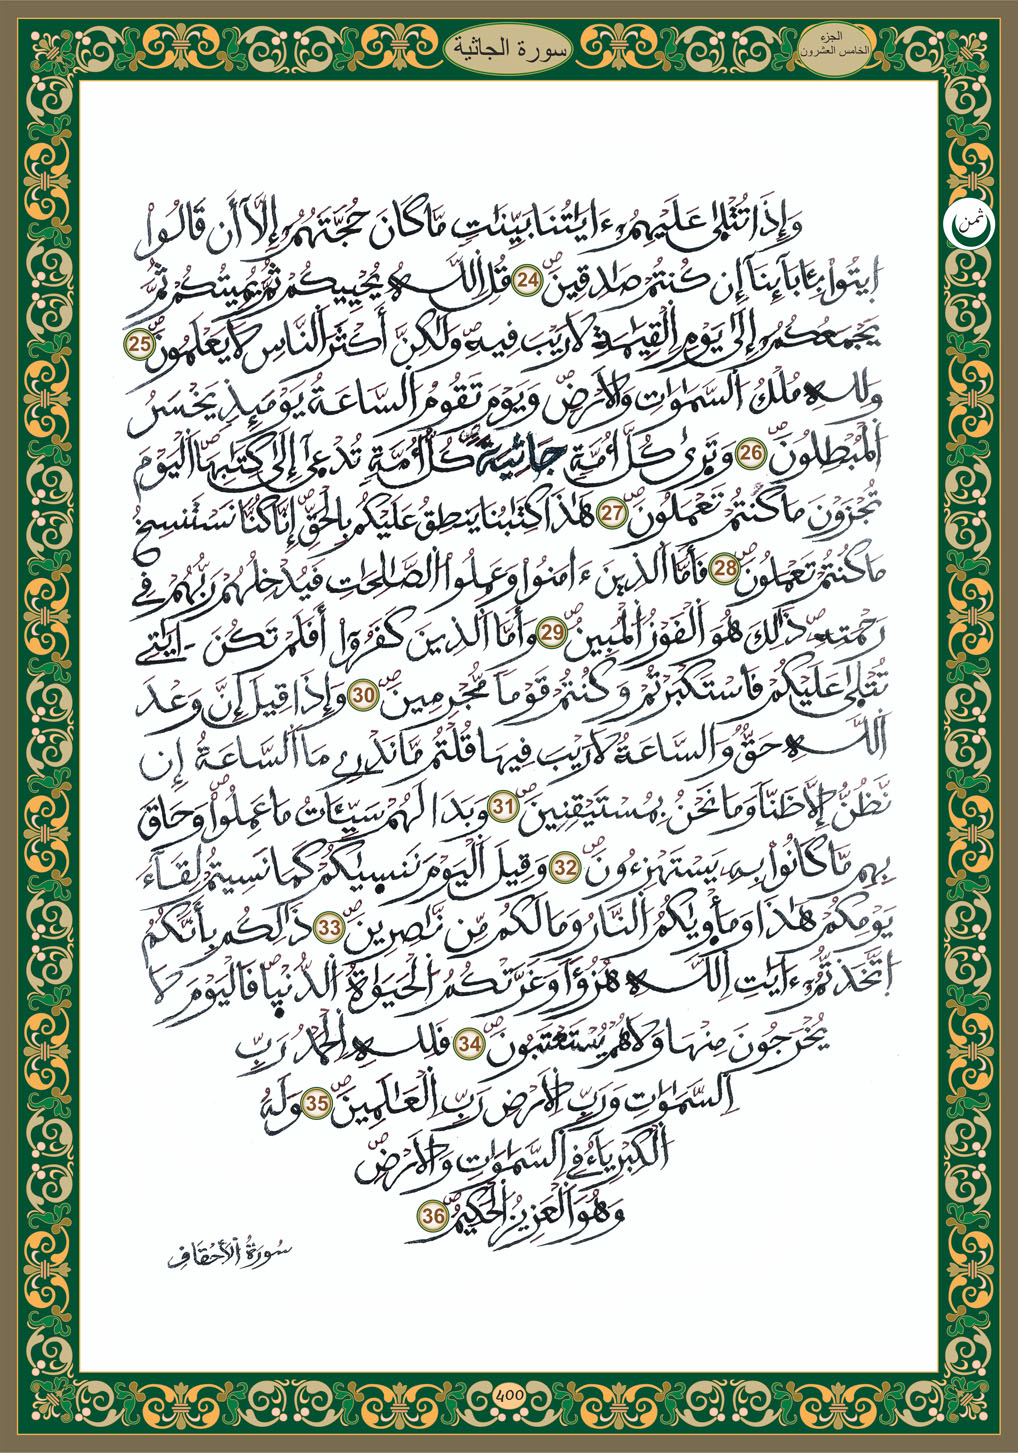 سورة الجاثية
الجزء
الخامس العشرون
ثمن
وَإِذَا تُتْلَىٰ عَلَيْهِمُۥٓ ءَايَٰتُنَا بَيِّنَٰتٖ مَّا كَانَ حُجَّتَهُمُۥٓ إِلَّآ أَن قَالُوا۟
ايتُوا۟ بِـَٔابَآئِنَآ إِن كُنتُمْ صَٰدِقِينَۖ 24 قُلِ اللَّهُ يُحْيِيكُمْ ثُمَّ يُمِيتُكُمْ ثُمَّ
يَجْمَعُكُمُۥٓ إِلَىٰ يَوْمِ الْقِيَٰمَةِ لَا رَيْبَ فِيهِۖ وَلَٰكِنَّ أَكْثَرَ النَّاسِ لَا يَعْلَمُونَۖ 25
وَلِلهِ مُلْكُ السَّمَٰوَٰتِ وَالْأَرْضِۖ وَيَوْمَ تَقُومُ السَّاعَةُ يَوْمَئِذٖ يَخْسَرُ
الْمُبْطِلُونَۖ 26 وَتَرَىٰ كُلَّ أُمَّةٖ جَاثِيَةٗۖ كُلُّ أُمَّةٖ تُدْعَىٰٓ إِلَىٰ كِتَٰبِهَاۖ الْيَوْمَ
تُجْزَوْنَ مَا كُنتُمْ تَعْمَلُونَۖ 27 هَٰذَا كِتَٰبُنَا يَنطِقُ عَلَيْكُم بِالْحَقِّۖ إِنَّا كُنَّا نَسْتَنسِخُ
مَا كُنتُمْ تَعْمَلُونَۖ 28 فَأَمَّا الَّذِينَ ءَامَنُوا۟ وَعَمِلُوا۟ الصَّٰلِحَٰتِ فَيُدْخِلُهُمْ رَبُّهُمْ فِي
رَحْمَتِهِۦۖ ذَٰلِكَ هُوَ الْفَوْزُ الْمُبِينُۖ 29 وَأَمَّا الَّذِينَ كَفَرُوٓا۟ أَفَلَمْ تَكُنَ ـ‍ايَٰتِي
تُتْلَىٰ عَلَيْكُمْ فَاسْتَكْبَرْتُمْ وَكُنتُمْ قَوْمٗا مُّجْرِمِينَۖ 30 وَإِذَا قِيلَ إِنَّ وَعْدَ
اللَّهِ حَقٌّ وَالسَّاعَةُ لَا رَيْبَ فِيهَا قُلْتُم مَّا نَدْرِي مَا السَّاعَةُ إِن
نَّظُنُّ إِلَّا ظَنّٗا وَمَا نَحْنُ بِمُسْتَيْقِنِينَۖ 31 وَبَدَا لَهُمْ سَيِّـَٔاتُ مَا عَمِلُوا۟ۖ وَحَاقَ
بِهِم مَّا كَانُوا۟ بِهِۦ يَسْتَهْزِءُونَۖ 32 وَقِيلَ الْيَوْمَ نَنسَىٰكُمْ كَمَا نَسِيتُمْ لِقَآءَ
يَوْمِكُمْ هَٰذَا وَمَأْوَىٰكُمُ النَّارُ وَمَا لَكُم مِّن نَّٰصِرِينَۖ 33 ذَٰلِكُم بِأَنَّكُمُ
اتَّخَذتُّمُۥٓ ءَايَٰتِ اللَّهِ هُزُؤٗا وَغَرَّتْكُمُ الْحَيَوٰةُ الدُّنْيَاۖ فَالْيَوْمَ لَا
يُخْرَجُونَ مِنْهَا وَلَا هُمْ يُسْتَعْتَبُونَۖ 34 فَلِلهِ الْحَمْدُ رَبِّ
السَّمَٰوَٰتِ وَرَبِّ الْأَرْضِ رَبِّ الْعَٰلَمِينَۖ 35 وَلَهُ
الْكِبْرِيَآءُ فِي السَّمَٰوَٰتِ وَالْأَرْضِۖ
وَهُوَ الْعَزِيزُ الْحَكِيمُۖ 36
سُورَةُ الْأَحْقَافِ
400